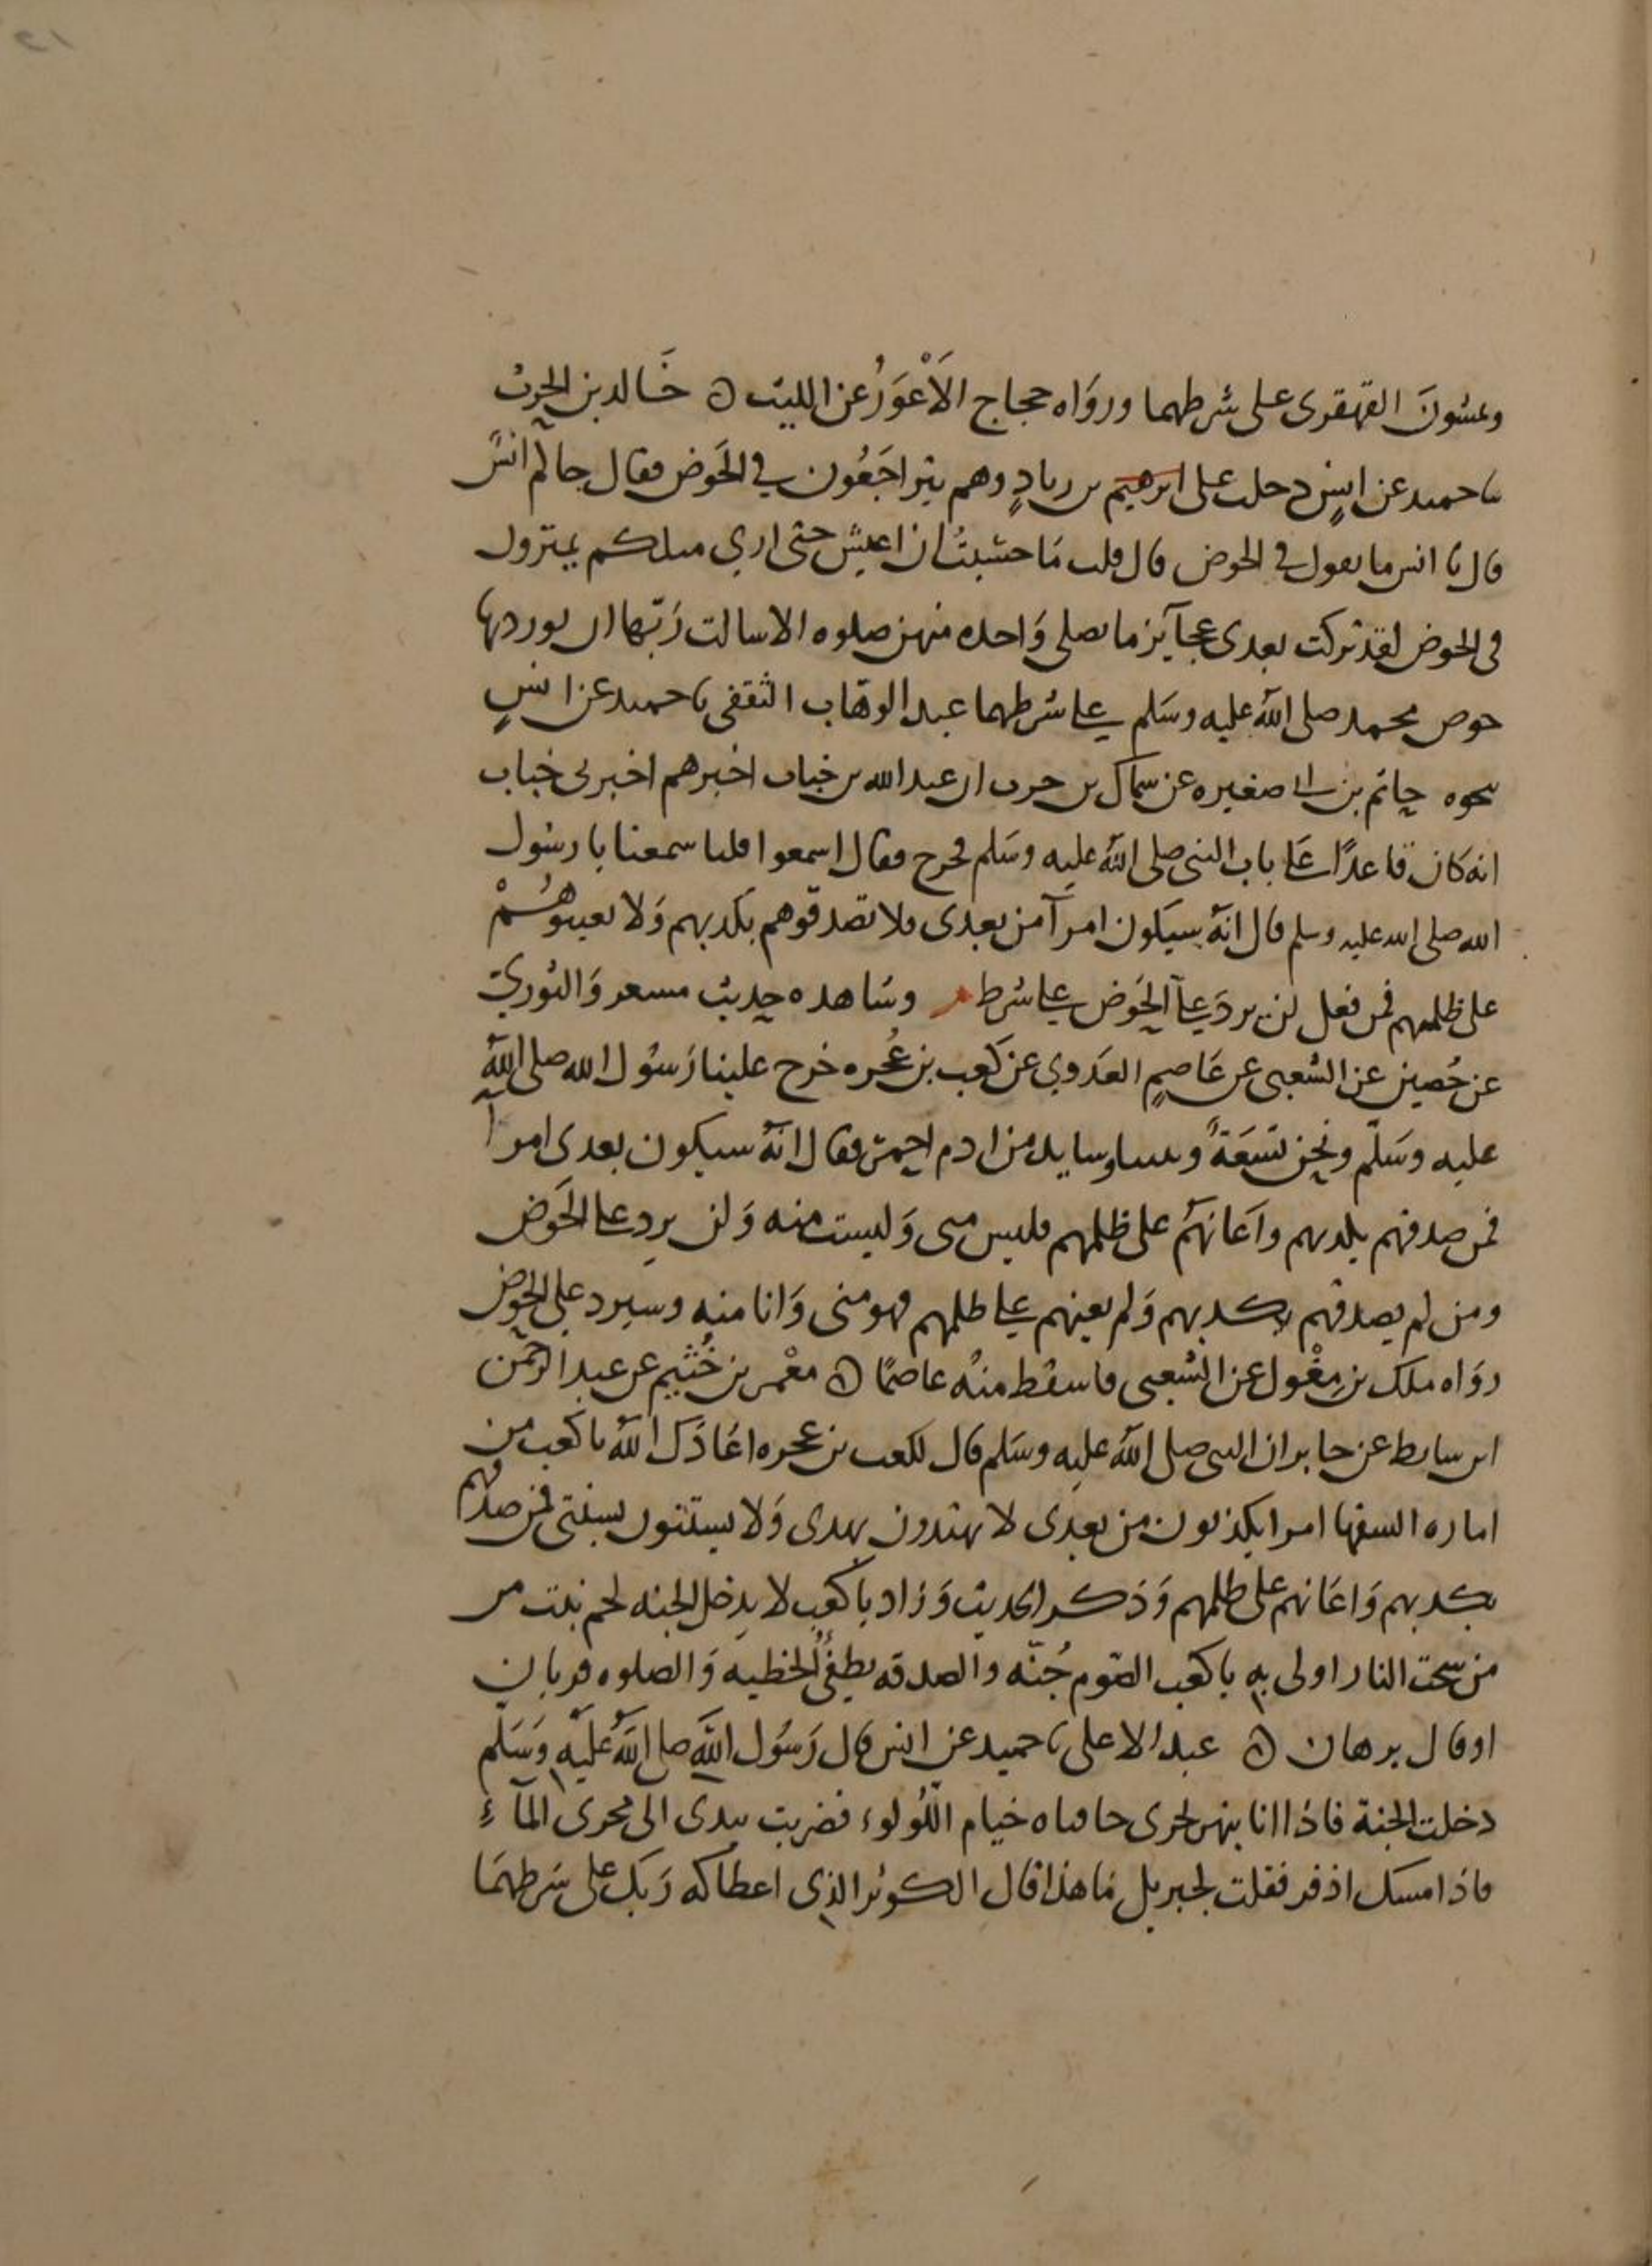 ويمشون القهقرى على شرطهما ورواه حجاج الأعور عن الليث ه خالد بن الحرث
نا حميد عن انس دخلت على ابرهيم بن زياد وهم يتراجعون في الحوض فقال جاكم انس
قال يا انس ما تقول في الحوض قال قلت ما حسبت ان اعيش حتى ارى مثلكم يمترون
في الحوض لقد تركت بعدي عجايز ما تصلي واحده منهن صلوه الا سالت ربها ان يوردها
حوض محمد صلى الله عليه وسلم على شرطهما عبد الوهاب الثقفي نا حميد عن انس
نحوه حاتم بن ابي صغيره عن سماك بن حرب ان عبد الله بن خباب اخبرهم اخبرني خباب
انه كان قاعدا على باب النبي صلى الله عليه وسلم فخرج فقال اسمعوا قلنا سمعنا يا رسول
الله صلى الله عليه وسلم قال انه سيكون امرآ من بعدي فلا تصدقوهم بكذبهم ولا تعينوهم
على ظلمهم فمن فعل لن يرد على الحوض على شرط م وشاهده حديث مسعر والثوري
عن حصين عن الشعبي عن عاصم العدوي عن كعب بن عجره خرج علينا رسول الله صلى الله
عليه وسلم ونحن تسعة وبيننا وسايد من ادم احمر فقال انه سيكون بعدي امرآ
فمن صدقهم بكذبهم واعانهم على ظلمهم فليس مني وليست منه ولن يرد على الحوض
ومن لم يصدقهم بكذبهم ولم يعينهم على ظلمهم فهو مني وانا منه وسيرد على الحوض
رواه ملك بن مغول عن الشعبي فاسقط منه عاصما ه معمر بن خثيم عن عبد الرحمن
ابن سابط عن جابر ان النبي صلى الله عليه وسلم قال لكعب بن عجره اعاذك الله يا كعب من
اماره السفها امرا يكذبون من بعدي لا يهتدون بهدى ولا يستنون بسنتي فمن صدقهم
بكذبهم واعانهم على ظلمهم وذكر الحديث وزاد يا كعب لا يدخل الجنه لحم نبت من
من سحت النار اولى به يا كعب الصوم جنه والصدقه تطفئ الخطيه والصلوه قربان
او قال برهان ه عبد الاعلى نا حميد عن انس قال رسول الله صلى الله عليه وسلم
دخلت الجنة فاذا انا بنهر يجرى حافتاه خيام اللولوء فضربت بيدى الى مجرى المآء
فاذا مسك اذفر فقلت لجبريل ما هذا قال الكوثر الذي اعطاكه ربك على شرطهما